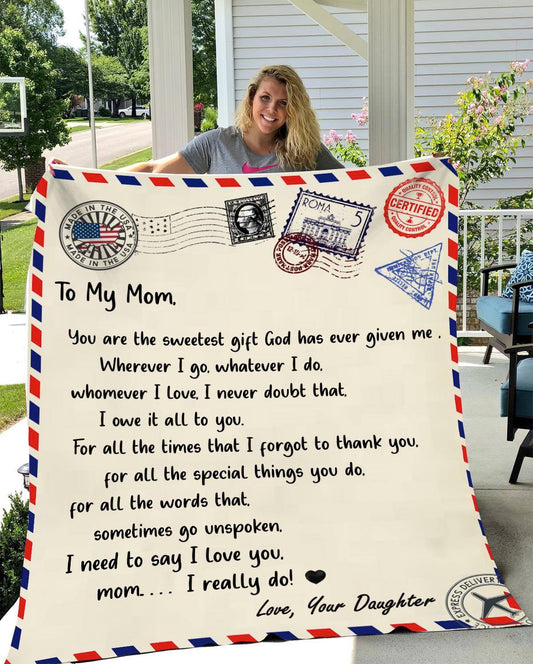 MADE IN THE USA
MADE IN THE USA
ROMA
5
QUALITY CONTROL
CERTIFIED
QUALITY CONTROL
To My Mom,
You are the sweetest gift God has ever given me .
Wherever I go, whatever I do,
whomever I love, I never doubt that,
I owe it all to you.
For all the times that I forgot to thank you,
for all the special things you do,
for all the words that,
sometimes go unspoken,
I need to say I love you,
mom.... I really do!
Love, Your Daughter
EXPRESS DELIVERY